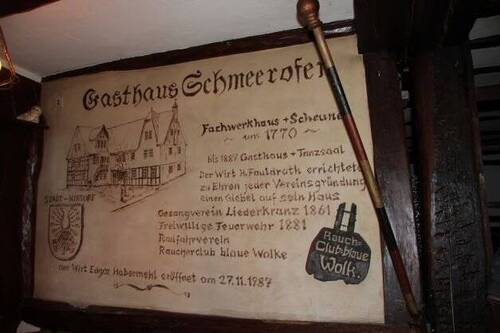 Gasthaus Schmeerofen
Fachwerkhaus + Scheune
~ um 1770 ~
bis 1887 Gasthaus + Tanzsaal
Der Wirt H. Faulroth errichtete
zu Ehren jeder Vereinsgründung
einen Giebel auf sein Haus
Gesangverein Liederkranz 1861
Freiwillige Feuerwehr 1881
Radfahrverein
Raucherclub blaue Wolke
vom Wirt Edgar Habermehl eröffnet am 27.11.1987
STADT
Rauch-
Club blaue
Wolk.